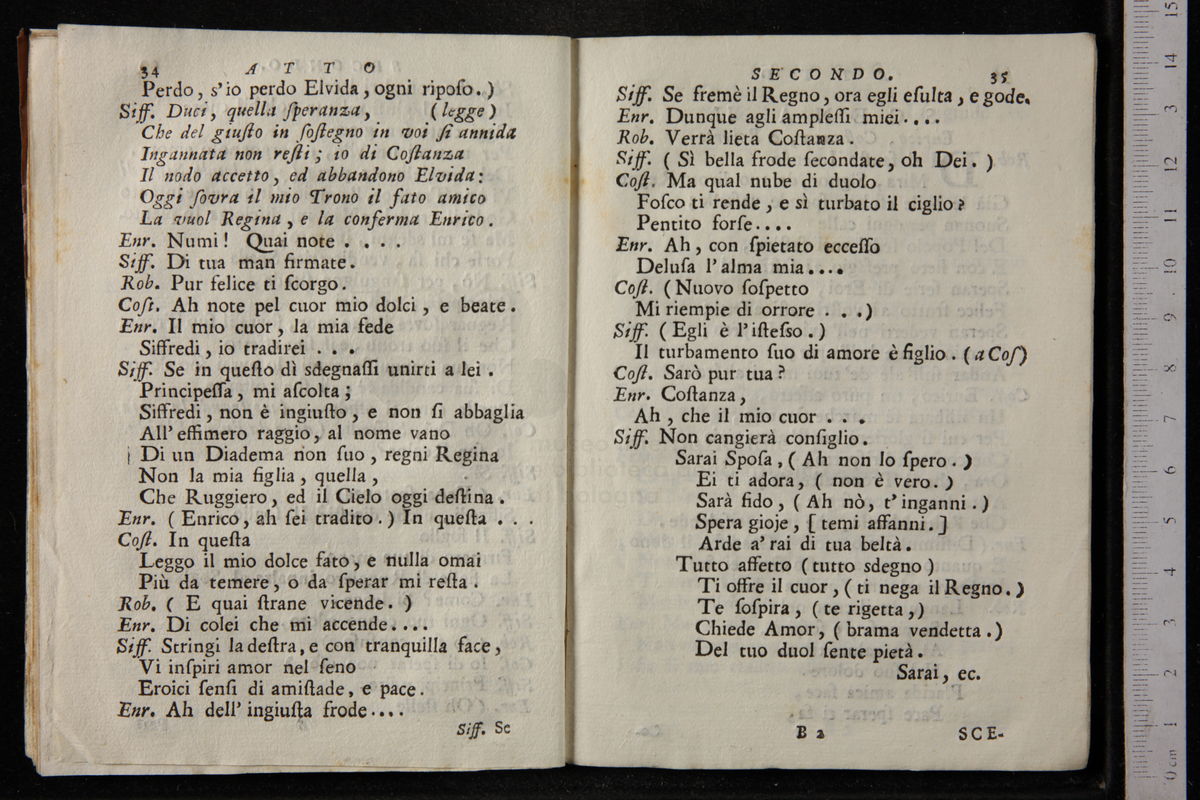 34 A T T O
Perdo, s'io perdo Elvida, ogni ripoſo.)
Siff. Duci, quella ſperanza, (legge)
Che del giuſto in ſoſtegno in voi ſi annida
Ingannata non reſti; io di Coſtanza
Il nodo accetto, ed abbandono Elvida:
Oggi ſovra il mio Trono il fato amico
La vuol Regina, e la conferma Enrico.
Enr. Numi! Quai note . . . .
Siff. Di tua man firmate.
Rob. Pur felice ti ſcorgo.
Coſt. Ah note pel cuor mio dolci, e beate.
Enr. Il mio cuor, la mia fede
Siffredi, io tradirei . . .
Siff. Se in queſto dì sdegnaſſi unirti a lei.
Principeſſa, mi aſcolta;
Siffredi, non è ingiuſto, e non ſi abbaglia
All' effimero raggio, al nome vano
Di un Diadema non ſuo, regni Regina
Non la mia figlia, quella,
Che Ruggiero, ed il Cielo oggi deſtina.
Enr. (Enrico, ah ſei tradito.) In queſta . . .
Coſt. In queſta
Leggo il mio dolce fato, e nulla omai
Più da temere, o da ſperar mi reſta.
Rob. ( E quai ſtrane vicende. )
Enr. Di colei che mi accende....
Siff. Stringi la deſtra, e con tranquilla face,
Vi inſpiri amor nel ſeno
Eroici ſenſi di amiſtade, e pace.
Enr. Ah dell' ingiuſta frode....
Siff. Se
SECONDO. 35
Siff. Se fremè il Regno, ora egli eſulta, e gode.
Enr. Dunque agli ampleſſi miei....
Rob. Verrà lieta Coſtanza.
Siff. ( Sì bella frode ſecondate, oh Dei. )
Coſt. Ma qual nube di duolo
Foſco ti rende, e sì turbato il ciglio?
Pentito forſe....
Enr. Ah, con ſpietato ecceſſo
Deluſa l'alma mia....
Coſt. (Nuovo ſoſpetto
Mi riempie di orrore . . .)
Siff. (Egli è l'iſteſso.)
Il turbamento ſuo di amore è figlio. (a Coſ)
Coſt. Sarò pur tua?
Enr. Coſtanza,
Ah, che il mio cuor . . .
Siff. Non cangierà conſiglio.
Sarai Spoſa, (Ah non lo ſpero.)
Ei ti adora, ( non è vero. )
Sarà fido, (Ah nò, t'inganni.)
Spera gioje, [temi affanni.]
Arde a' rai di tua beltà.
Tutto affetto (tutto sdegno )
Ti offre il cuor, (ti nega il Regno.)
Te ſoſpira, (te rigetta,)
Chiede Amor, (brama vendetta.)
Del tuo duol ſente pietà.
Sarai, ec.
B 2 SCE-
museo
biblioteca
bologna
0 cm 1 2 3 4 5 6 7 8 9 10 11 12 13 14 15